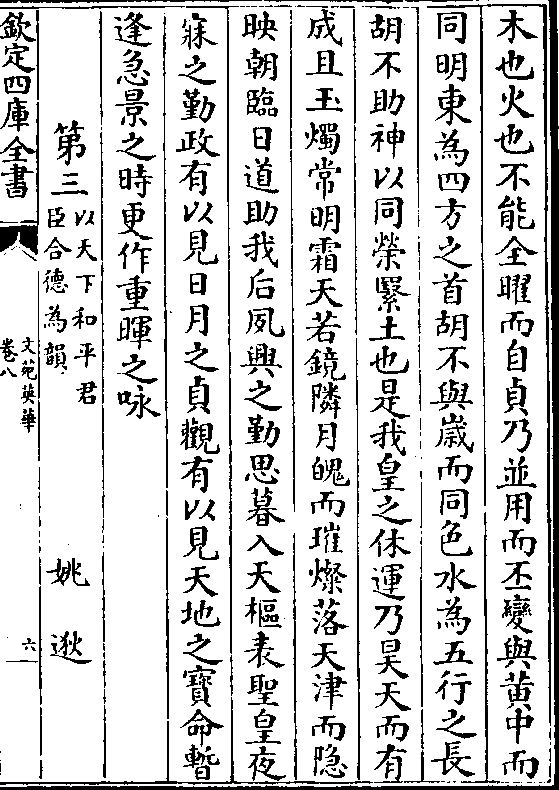 木也火也不能全曜而自貞乃並用而丕變與黄中而
同明東為四方之首胡不與嵗而同色水為五行之長
胡不助神以同榮緊土也是我皇之休運乃昊天而有
成且玉燭常明霜天若鏡隣月魄而璀燦落天津而隐
映朝臨日道助我后夙興之勤思暮入天樞表聖皇夜
寐之勤政有以見日月之貞觀有以見天地之寳命暫
逢急景之時更作重暉之咏
第三
以天下和平君
臣合德為韻
姚逖
欽定四庫全書
文苑英華
卷八
六